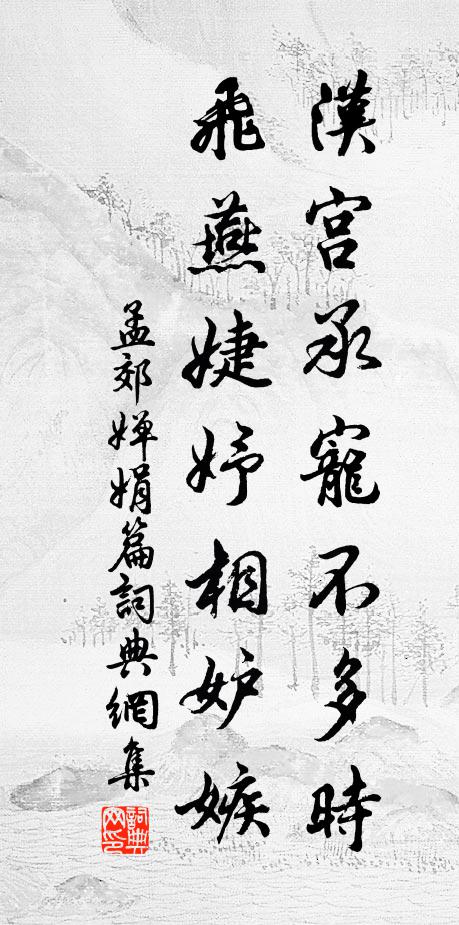 漢宮承寵不多時
飛燕婕妤相妒嫉
孟郊嬋娟篇詞典網集
詞典网印